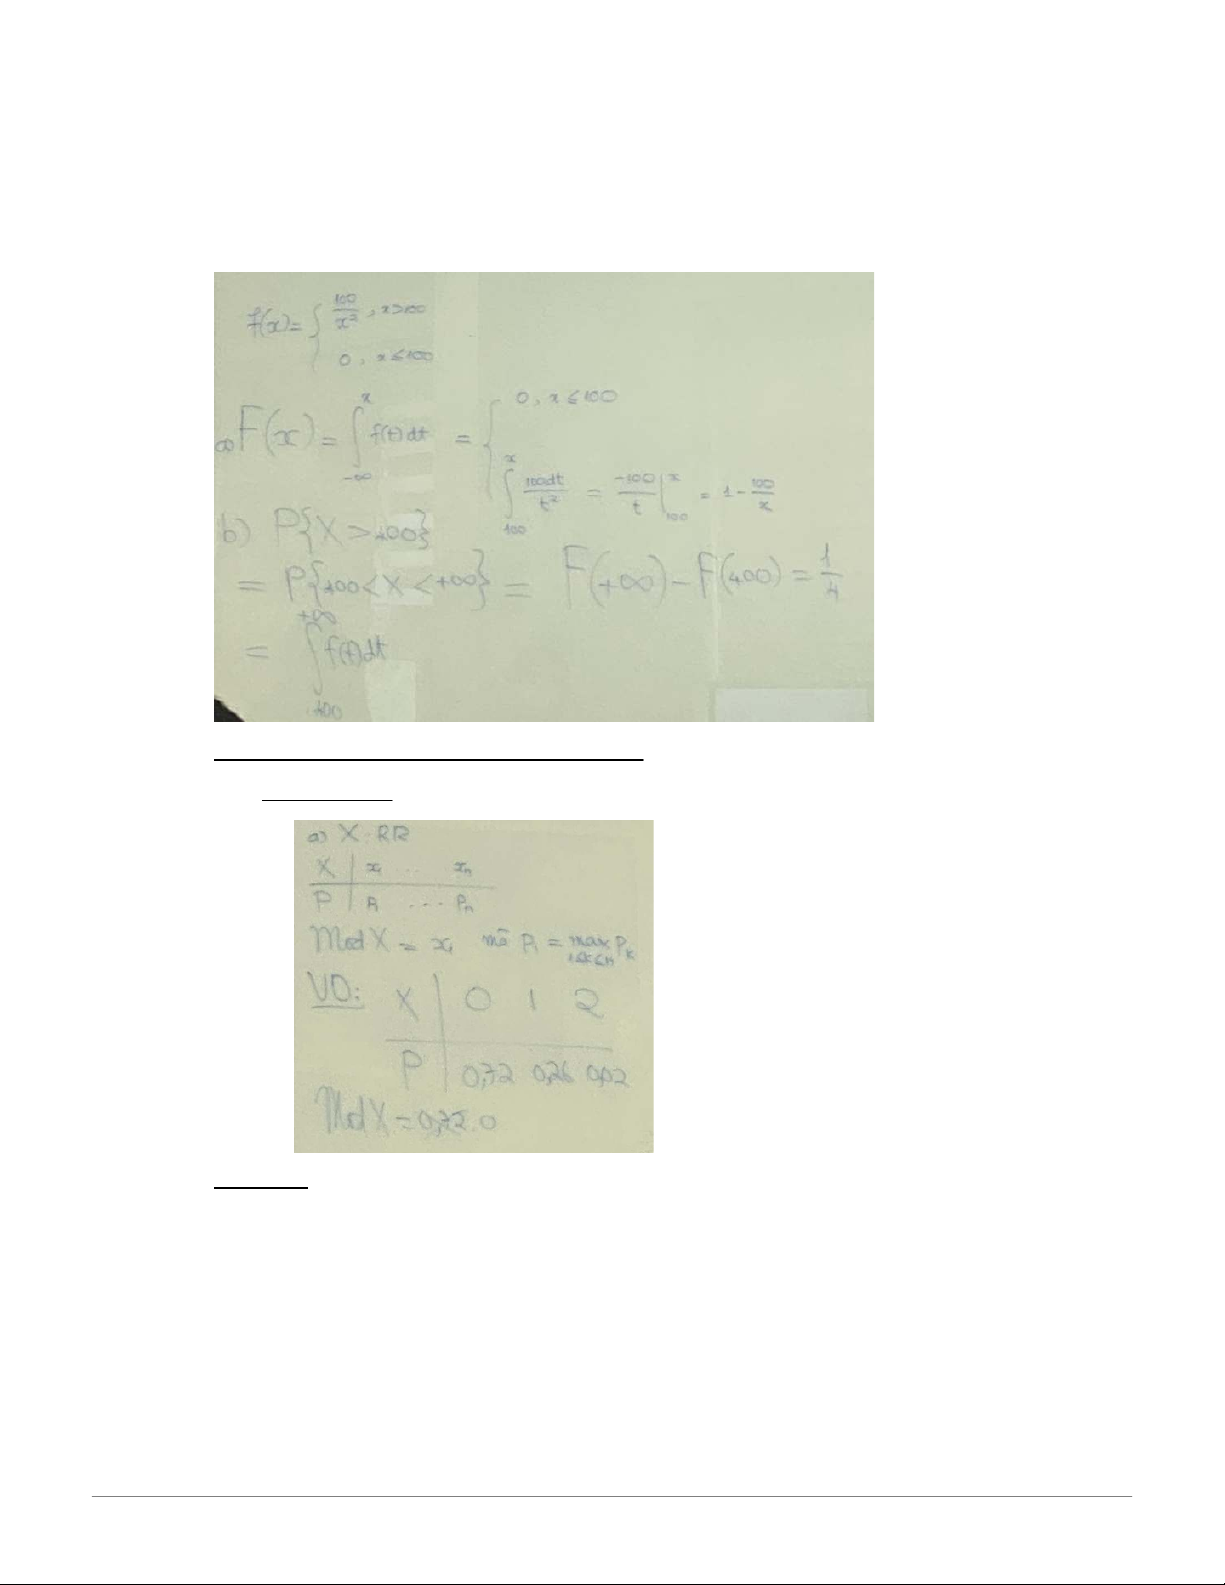 f(x) = { 100/x², x>100
0, x≤100
a) F(x) = ∫_{-∞}^{x} f(t)dt = { 0, x≤100
∫_{100}^{x} 100dt/t² = -100/t |_{100}^{x} = 1 - 100/x
b) P{X>400}
= P{400<X<+∞} = F(+∞) - F(400) = 1/4
= ∫_{400}^{+∞} f(t)dt
a) X: RR
X | x₁ ... xₙ
P | P₁ ... Pₙ
Mod X = xᵢ mà Pᵢ = max_{1≤k≤n} Pₖ
VD: X | 0 1 2
P | 0,72 0,26 0,02
Mod X = 0